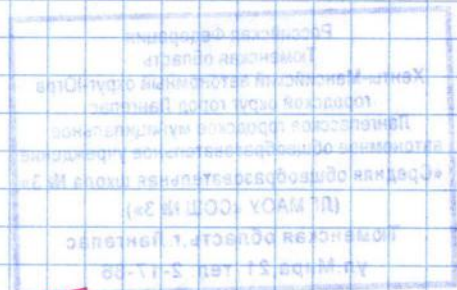 Российская Федерация
Тюменская область
Ханты-Мансийский автономный округ-Югра
городской округ город Лангепас
Лангепасское городское муниципальное
автономное общеобразовательное учреждение
«Средняя общеобразовательная школа № 3»
(ЛГ МАОУ «СОШ № 3»)
Тюменская область, г. Лангепас
ул. Мира, 21, тел. 2-17-